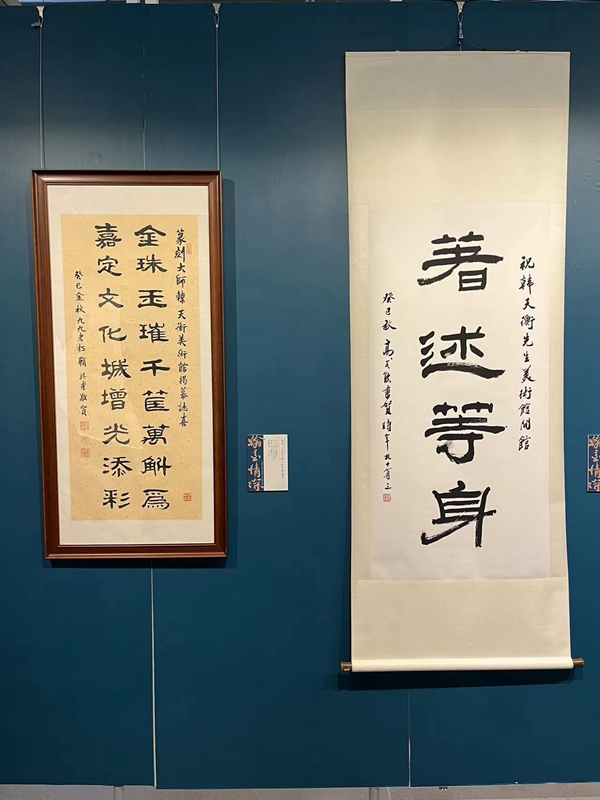 篆刻大師韓天衡美術館揭幕誌喜
金珠玉璀千筐萬斛為
嘉定文化城增光添彩
癸巳金秋九九老朽顧振樂敬賀
翰墨情深
祝韓天衡先生美術館開館
著述等身
癸巳秋高式熊書賀時年九十有三
翰墨情深